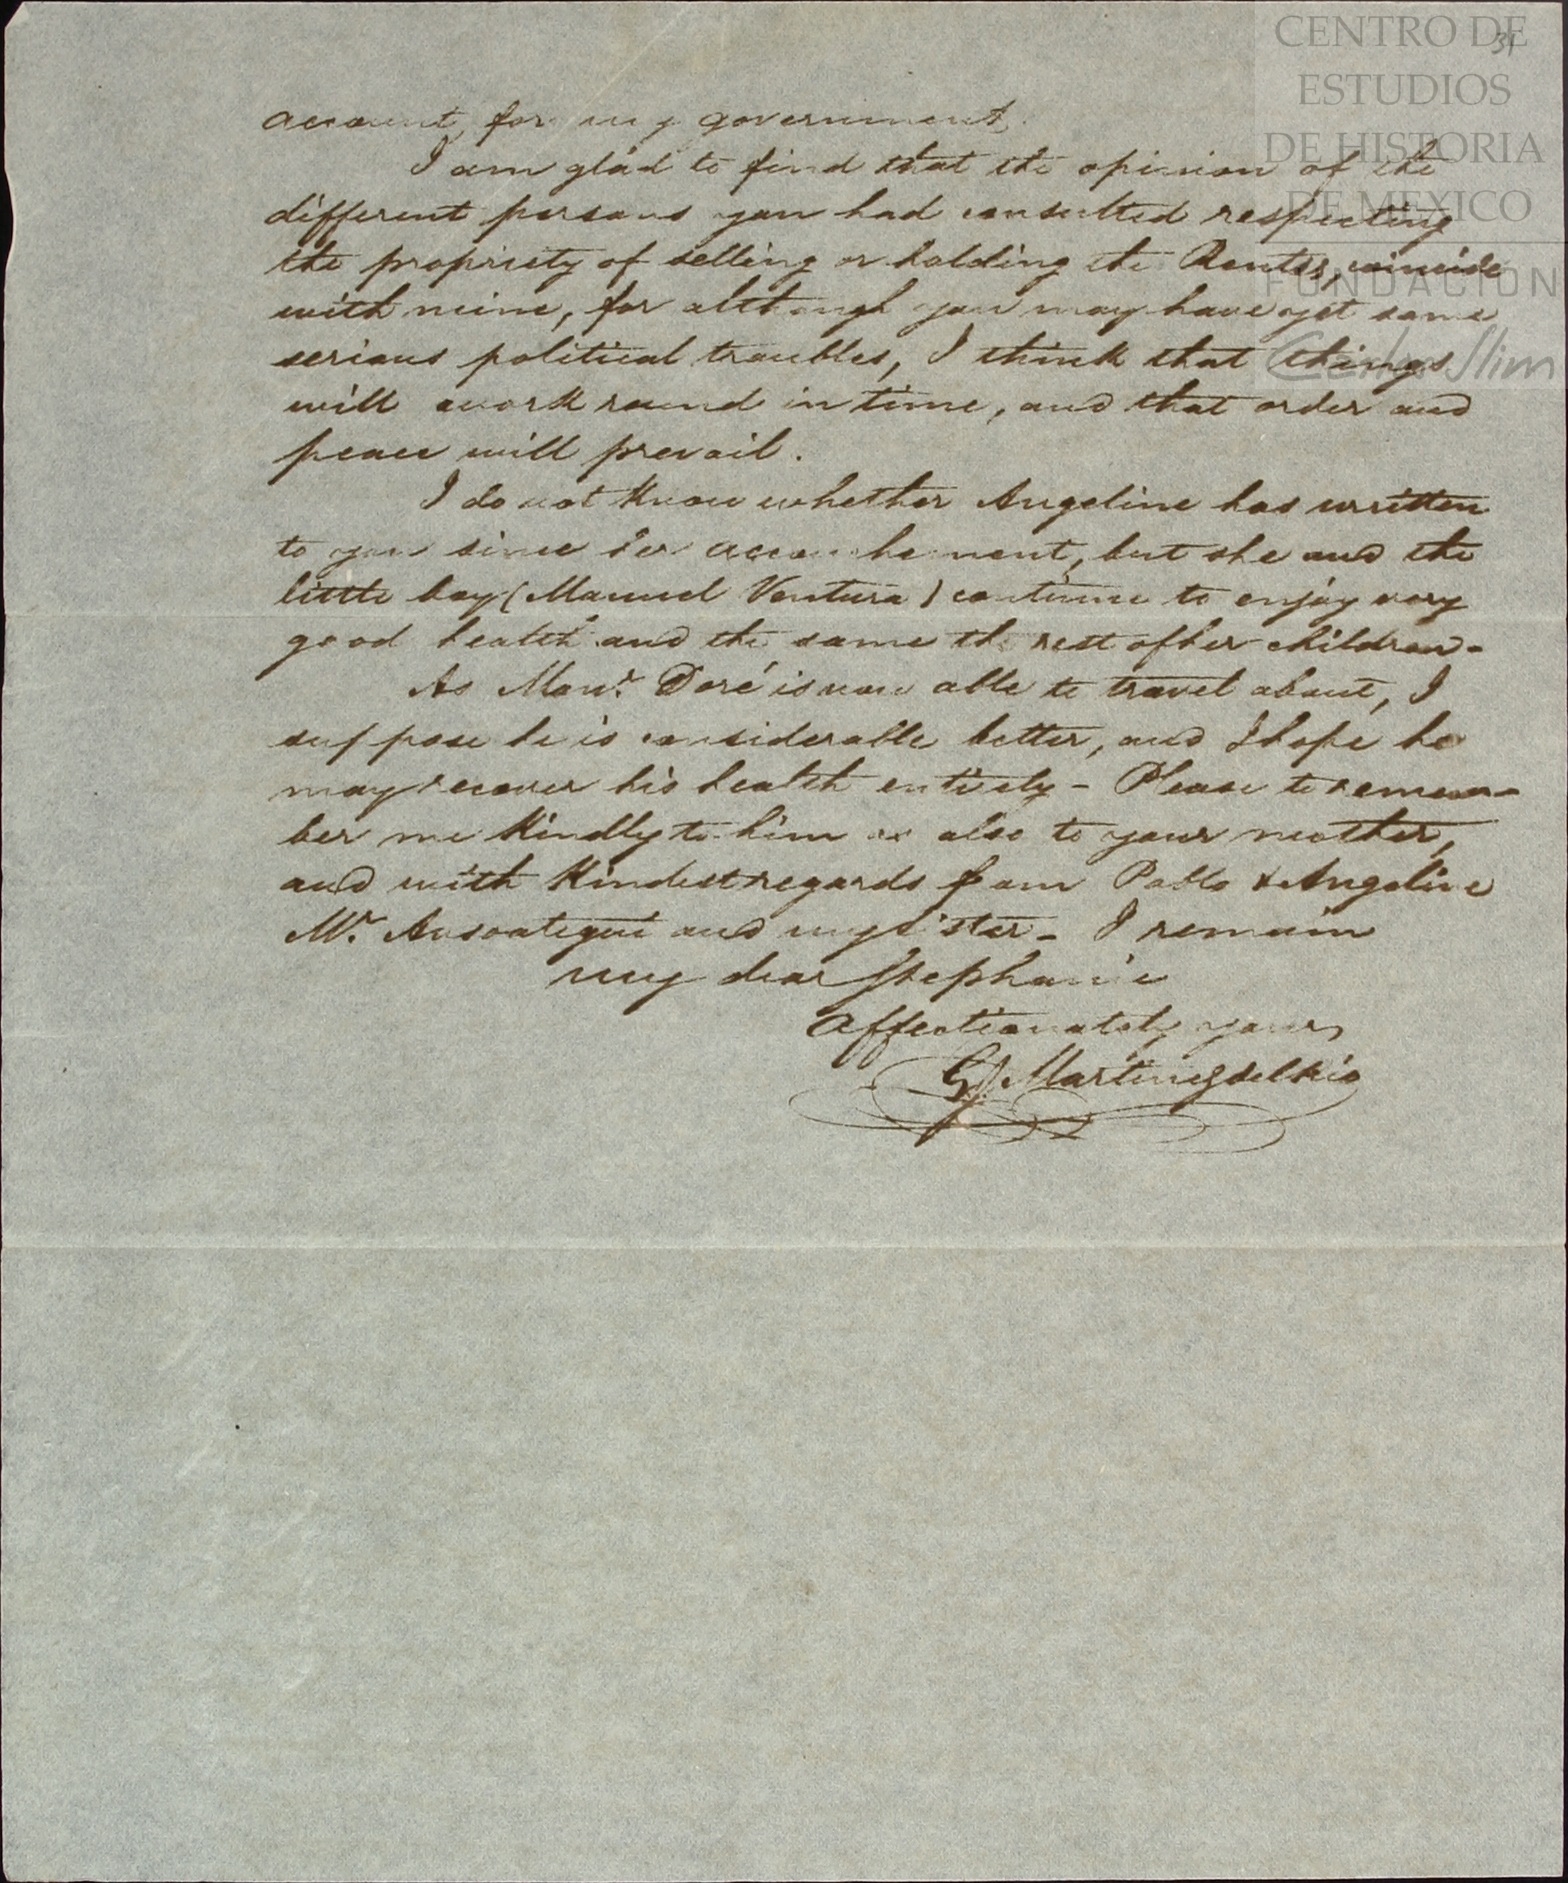 CENTRO DE
ESTUDIOS
DE HISTORIA
DE MEXICO
FUNDACION
Carlos Slim
31
account, for my government.
I am glad to find that the opinion of the
different persons you had consulted respecting
the propriety of selling or holding the Rentes, coincide
with mine, for although you may have yet some
serious political troubles, I think that things
will work round in time, and that order and
peace will prevail.
I do not know whether Angeline has written
to you since her accouchement, but she and the
little boy (Manuel Ventura) continue to enjoy very
good health and the same the rest of her children.-
As Monr. Doré is now able to travel about, I
suppose he is considerable better, and I hope he
may recover his health entirely - Please to remem-
ber me kindly to him as also to your mother,
and with kindest regards from Pablo & Angeline
Mr. Ansoategui and my sister - I remain
my dear Stephanie
Affectionately yours,
G Martinez del Rio